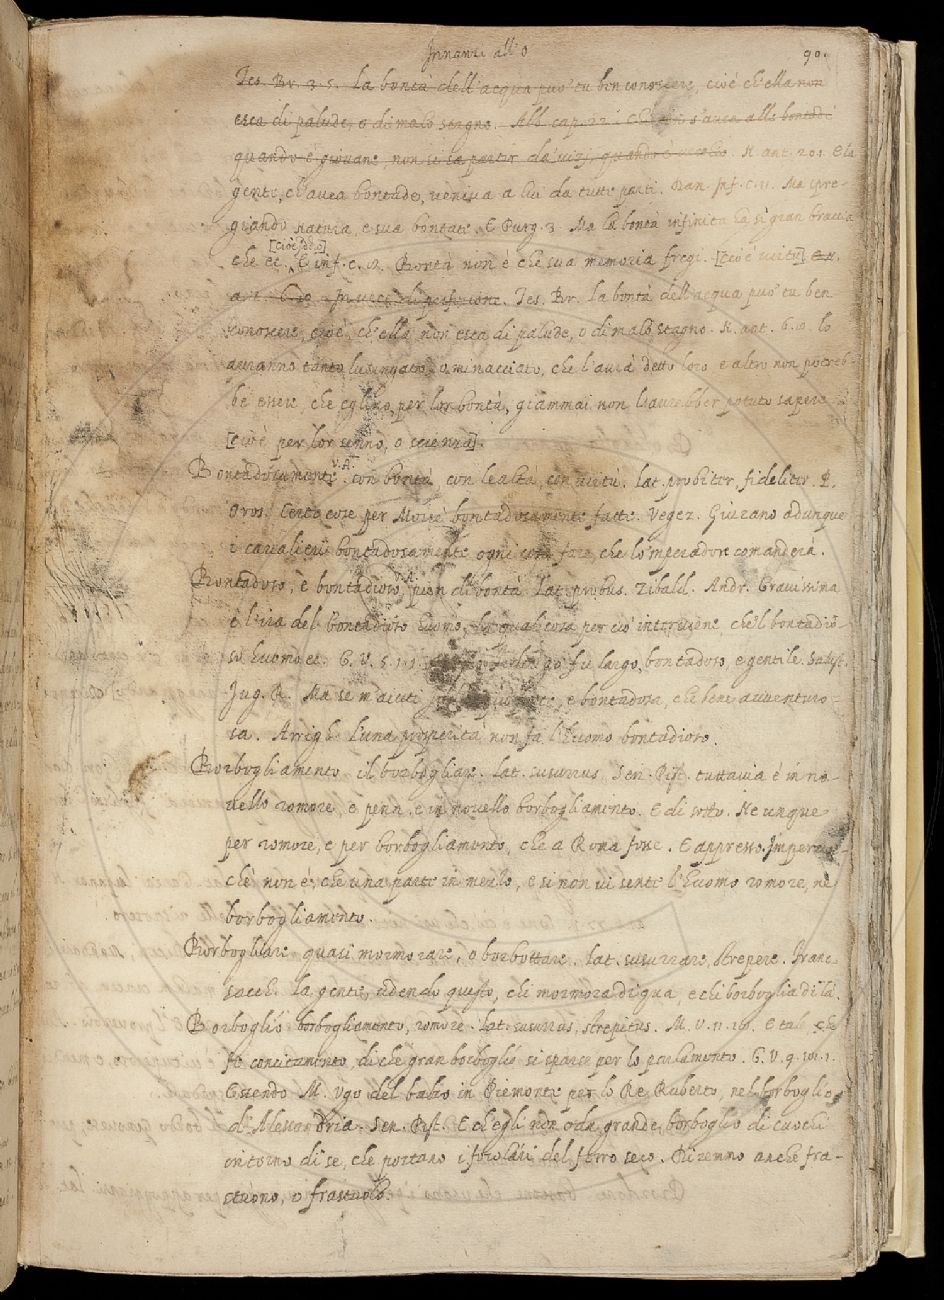 Innanzi all' O
90.
Tes. Br. 3. 5. La bontà dell'acqua può tu ben conoscere, cioè ch'ella non
esca di palude, o di malo stagno. Alb. cap. 22. alla bontade
quando è giovane non si sa partir da' vizj, quando è vecchio. N. ant. 20. 1. E la
gente, ch'avea bontade, veniva a lui da tutte parti. Dan. Inf. c. 11. Ma spre-
giando natura, e sua bontate. E Purg. 3. Ma la bontà infinita ha sì gran braccia
che ec. [cioè Iddio] E inf. c. 8. Bontà non è che sua memoria fregi. [cioè virtù]
In vece di perfezione. Tes. Br. La bontà dell'acqua può tu ben
conoscere, cioè, ch'ella non esca di palude, o di malo stagno. N. ant. 6. lo
avranno tanto lusingato, o minacciato, che l'avrà detto loro e altro non potreb-
be essere, che eglino, per lor bontà, giammai non l'avrebber potuto sapere
[cioè per lor senno, o scienza].
Bontadosamente V. A. con bontà, con lealtà, con virtù. Lat. probiter, fideliter. P.
Oros. Cento cose per Moisè bontadosamente fatte. Vegez. Giurano adunque
i cavalieri bontadosamente ogni cosa fare, che lo 'mperadore comanderà.
Bontadoso, e bontadioso V. A. pien di bontà Lat. probus. Zibald. Andr. Gravissima
è l'ira del bontadioso huomo, la qual cosa per ciò interviene, che 'l bontadio-
so huomo ec. G. V. 5. 1. 1. fu largo, bontadoso, e gentile. Salust.
Jug. R. Ma se m'aiuti e bontadosa, che bene avventuro-
sa. Arrigh. L'una prosperità non fa l'huomo bontadioso.
Borbogliamento il borbogliare. Lat. susurrus. Sen. Pist. tuttavia è in no-
vello romore, e penn. e in novello borbogliamento. E di sotto. Ne unque
per romore, e per borbogliamento, che a Roma fosse. E appresso. Imperoc-
chè non è che una parte in mezzo, e si non vi sente l'huomo romore, nè
borbogliamento.
Borbogliare quasi mormorare, o borbottare. Lat. susurrare, strepere. Franc.
Sacch. La gente, udendo questo, chi mormora di qua, e chi borboglia di là.
Borboglio borbogliamento, romore. Lat. susurrus, strepitus. M. V. 11. 18. E tal che
fe concitamento, di che gran borboglio si sparse per lo parlamento. G. V. 9. 101. 1.
Essendo M. Ugo del balzo in Piemonte per lo Re Ruberto, nel borboglio
di Alessandria. Sen. Pist. E ch'egli non oda grande borboglio di cuochi
intorno di se, che portano i focolari del ferro seco. Diremmo anche fra-
stuono, o frastuolo.